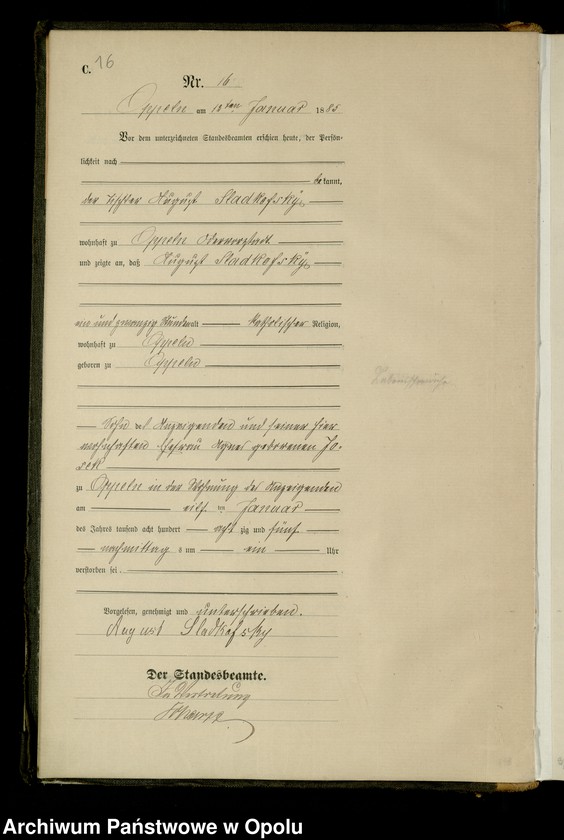 C. 16
Nr. 16
Oppeln am 13ten Januar 1885
Vor dem unterzeichneten Standesbeamten erschien heute, der Persön-
lichkeit nach
bekannt,
der August Sladkofsky,
wohnhaft zu Oppeln Odervorstadt
und zeigte an, daß August Sladkofsky,
ein und zwanzig Stunden alt katholischer Religion,
wohnhaft zu Oppeln
geboren zu Oppeln
Sohn des Anzeigenden und seiner hier
wohnhaften Ehefrau Agnes geborenen
zu Oppeln in der Wohnung des Anzeigenden
am eilf ten Januar
des Jahres tausend acht hundert acht zig und fünf
nachmittag s um ein Uhr
verstorben sei.
Vorgelesen, genehmigt und unterschrieben.
August Sladkofsky
Der Standesbeamte.
In Vertretung
Archiwum Państwowe w Opolu